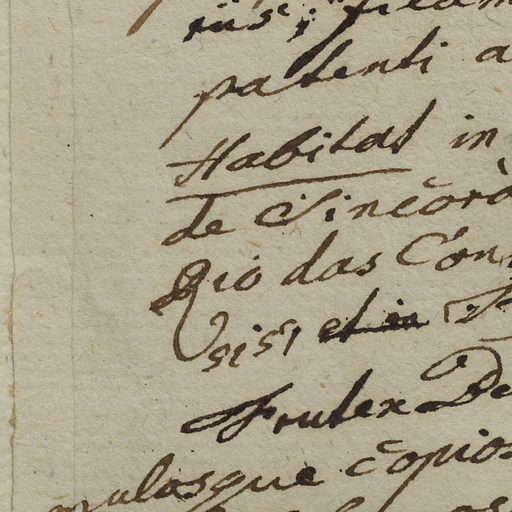 patenti a
Habitat in
de Sincorà
Rio das Con
sis, et in
Frutex De
mulosque copios